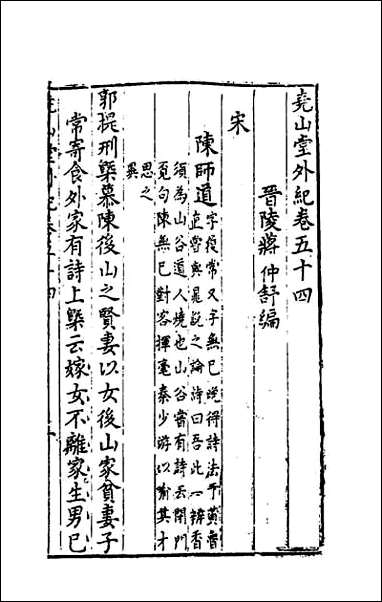 堯山堂外紀卷五十四
晉陵蔣仲舒編
宋
陳師道字履常又字無已晚得詩法于黃魯
直嘗與晁說之論詩曰吾此一瓣香
須為山谷道人燒也山谷嘗有詩云閉門
覓句陳無已對客揮毫秦少游以喻其才
思之
異
郭提刑槩慕陳後山之賢妻以女後山家貧妻子
常寄食外家有詩上槩云嫁女不離家生男已